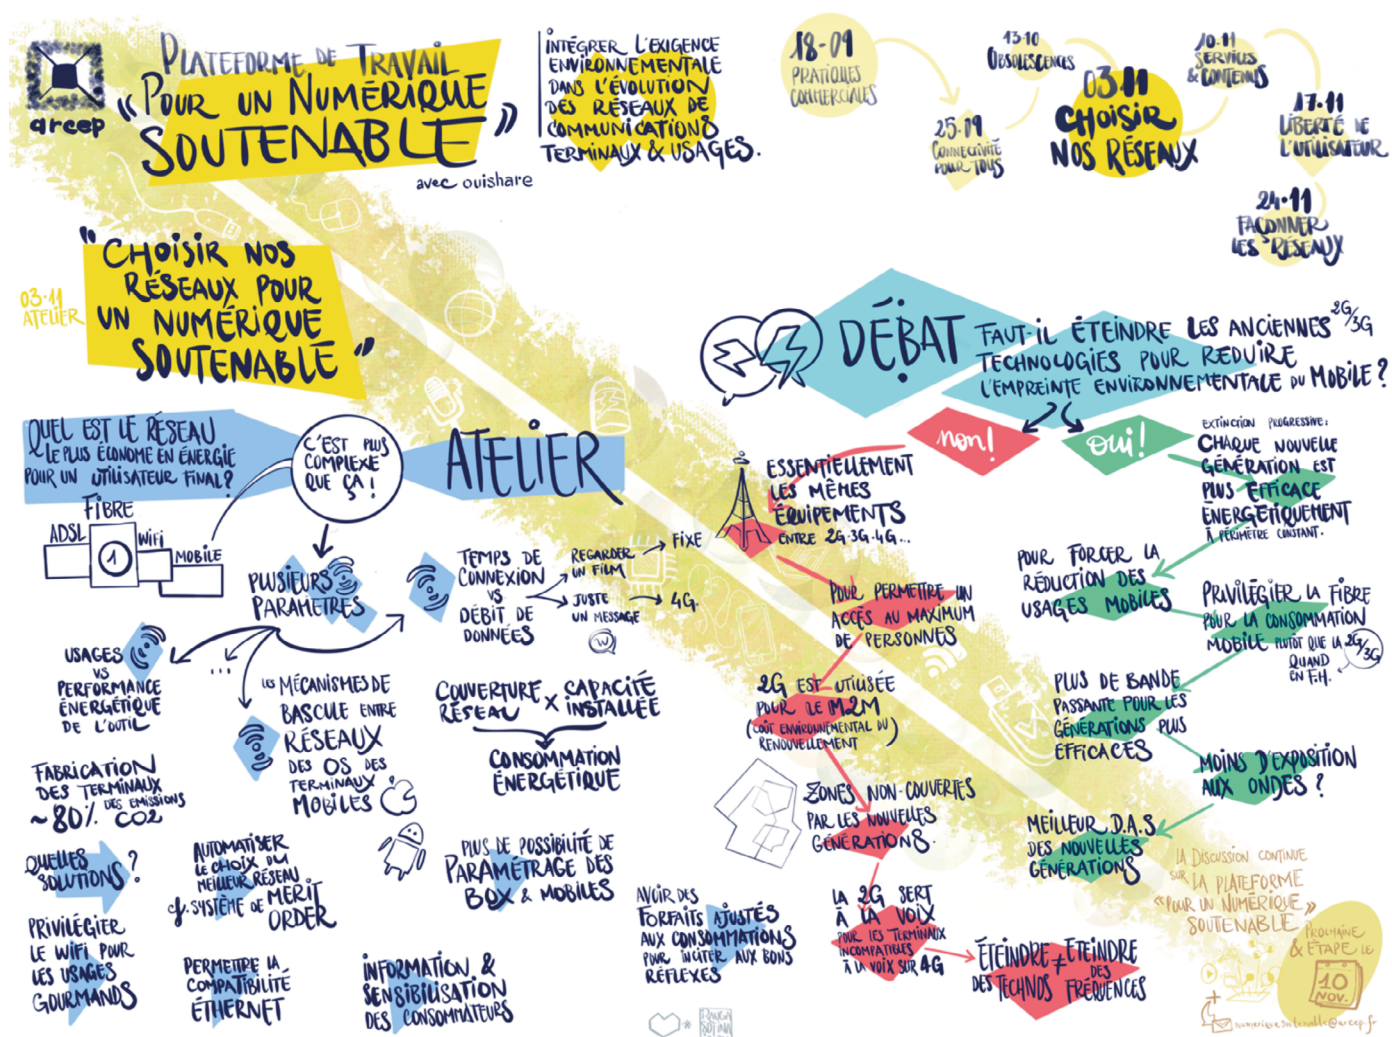 arcep
PLATEFORME DE TRAVAIL
"POUR UN NUMÉRIQUE
SOUTENABLE"
avec ouishare
INTÉGRER L'EXIGENCE
ENVIRONNEMENTALE
DANS L'ÉVOLUTION
DES RÉSEAUX DE
COMMUNICATIONS
TERMINAUX & USAGES.
18-09
PRATIQUES
COMMERCIALES
25-09
CONNECTIVITÉ
POUR TOUS
13-10
OBSOLESCENCES
03.11
CHOISIR
NOS RÉSEAUX
10-11
SERVICES
& CONTENUS
17-11
LIBERTÉ DE
L'UTILISATEUR
24-11
FAÇONNER
LES RÉSEAUX
03-11
ATELIER
"CHOISIR NOS
RÉSEAUX POUR
UN NUMÉRIQUE
SOUTENABLE"
QUEL EST LE RÉSEAU
LE PLUS ÉCONOME EN ÉNERGIE
POUR UN UTILISATEUR FINAL?
C'EST PLUS
COMPLEXE
QUE ÇA!
ATELIER
FIBRE
ADSL
1
WiFi
MOBILE
PLUSIEURS
PARAMÈTRES
TEMPS DE
CONNEXION
VS
DÉBIT DE
DONNÉES
REGARDER
UN FILM
FIXE
JUSTE
UN MESSAGE
4G.
USAGES
VS
PERFORMANCE
ÉNERGÉTIQUE
DE L'OUTIL
...
LES MÉCANISMES DE
BASCULE ENTRE
RÉSEAUX
DES OS DES
TERMINAUX
MOBILES
COUVERTURE RÉSEAU x CAPACITÉ INSTALLÉE
CONSOMMATION
ÉNERGÉTIQUE
FABRICATION
DES TERMINAUX
~80% DES EMISSIONS
CO2
QUELLES
SOLUTIONS?
PRIVILÉGIER
LE WIFI POUR
LES USAGES
GOURMANDS
AUTOMATISER
LE CHOIX DU
MEILLEUR RÉSEAU
cf. SYSTÈME DE MERIT
ORDER
PERMETTRE LA
COMPATIBILITÉ
ÉTHERNET
PLUS DE POSSIBILITÉ DE
PARAMÉTRAGE DES
BOX & MOBILES
INFORMATION &
SENSIBILISATION
DES CONSOMMATEURS
AVOIR DES
FORFAITS AJUSTÉS
AUX CONSOMMATIONS
POUR INCITER AUX BONS
RÉFLEXES
DÉBAT
FAUT-IL ÉTEINDRE LES ANCIENNES 2G/3G
TECHNOLOGIES POUR REDUIRE
L'EMPREINTE ENVIRONNEMENTALE DU MOBILE?
non!
oui!
ESSENTIELLEMENT
LES MÊMES
ÉQUIPEMENTS
ENTRE 2G-3G-4G...
POUR PERMETTRE UN
ACCÈS AU MAXIMUM
DE PERSONNES
2G EST UTILISÉE
POUR LE M2M
(COÛT ENVIRONNEMENTAL DU
RENOUVELLEMENT)
ZONES NON-COUVERTES
PAR LES NOUVELLES
GÉNÉRATIONS.
LA 2G SERT
À LA VOIX
POUR LES TERMINAUX
INCOMPATIBLES
À LA VOIX SUR 4G
ÉTEINDRE DES TECHNOS ≠ ETEINDRE DES FRÉQUENCES
EXTINCTION PROGRESSIVE:
CHAQUE NOUVELLE
GÉNÉRATION EST
PLUS EFFICACE
ENERGÉTIQUEMENT
À PÉRIMÈTRE CONSTANT.
POUR FORCER LA
RÉDUCTION DES
USAGES MOBILES
PRIVILÉGIER LA FIBRE
POUR LA CONSOMMATION
MOBILE PLUTÔT QUE LA 2G/3G
QUAND
EN F.H.
PLUS DE BANDE
PASSANTE POUR LES
GÉNÉRATIONS PLUS
EFFICACES
MOINS D'EXPOSITION
AUX ONDES?
MEILLEUR D.A.S
DES NOUVELLES
GÉNÉRATIONS
LA DISCUSSION CONTINUE
SUR LA PLATEFORME
"POUR UN NUMÉRIQUE
SOUTENABLE"
PROCHAINE
& ÉTAPE LE
10
NOV.
numeriquesoutenable@arcep.fr